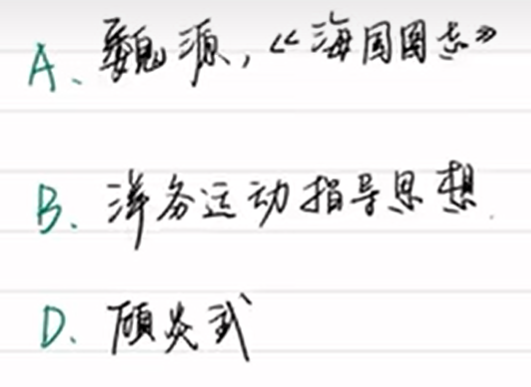 A、魏源，《海国图志》
B、洋务运动指导思想.
D、顾炎武